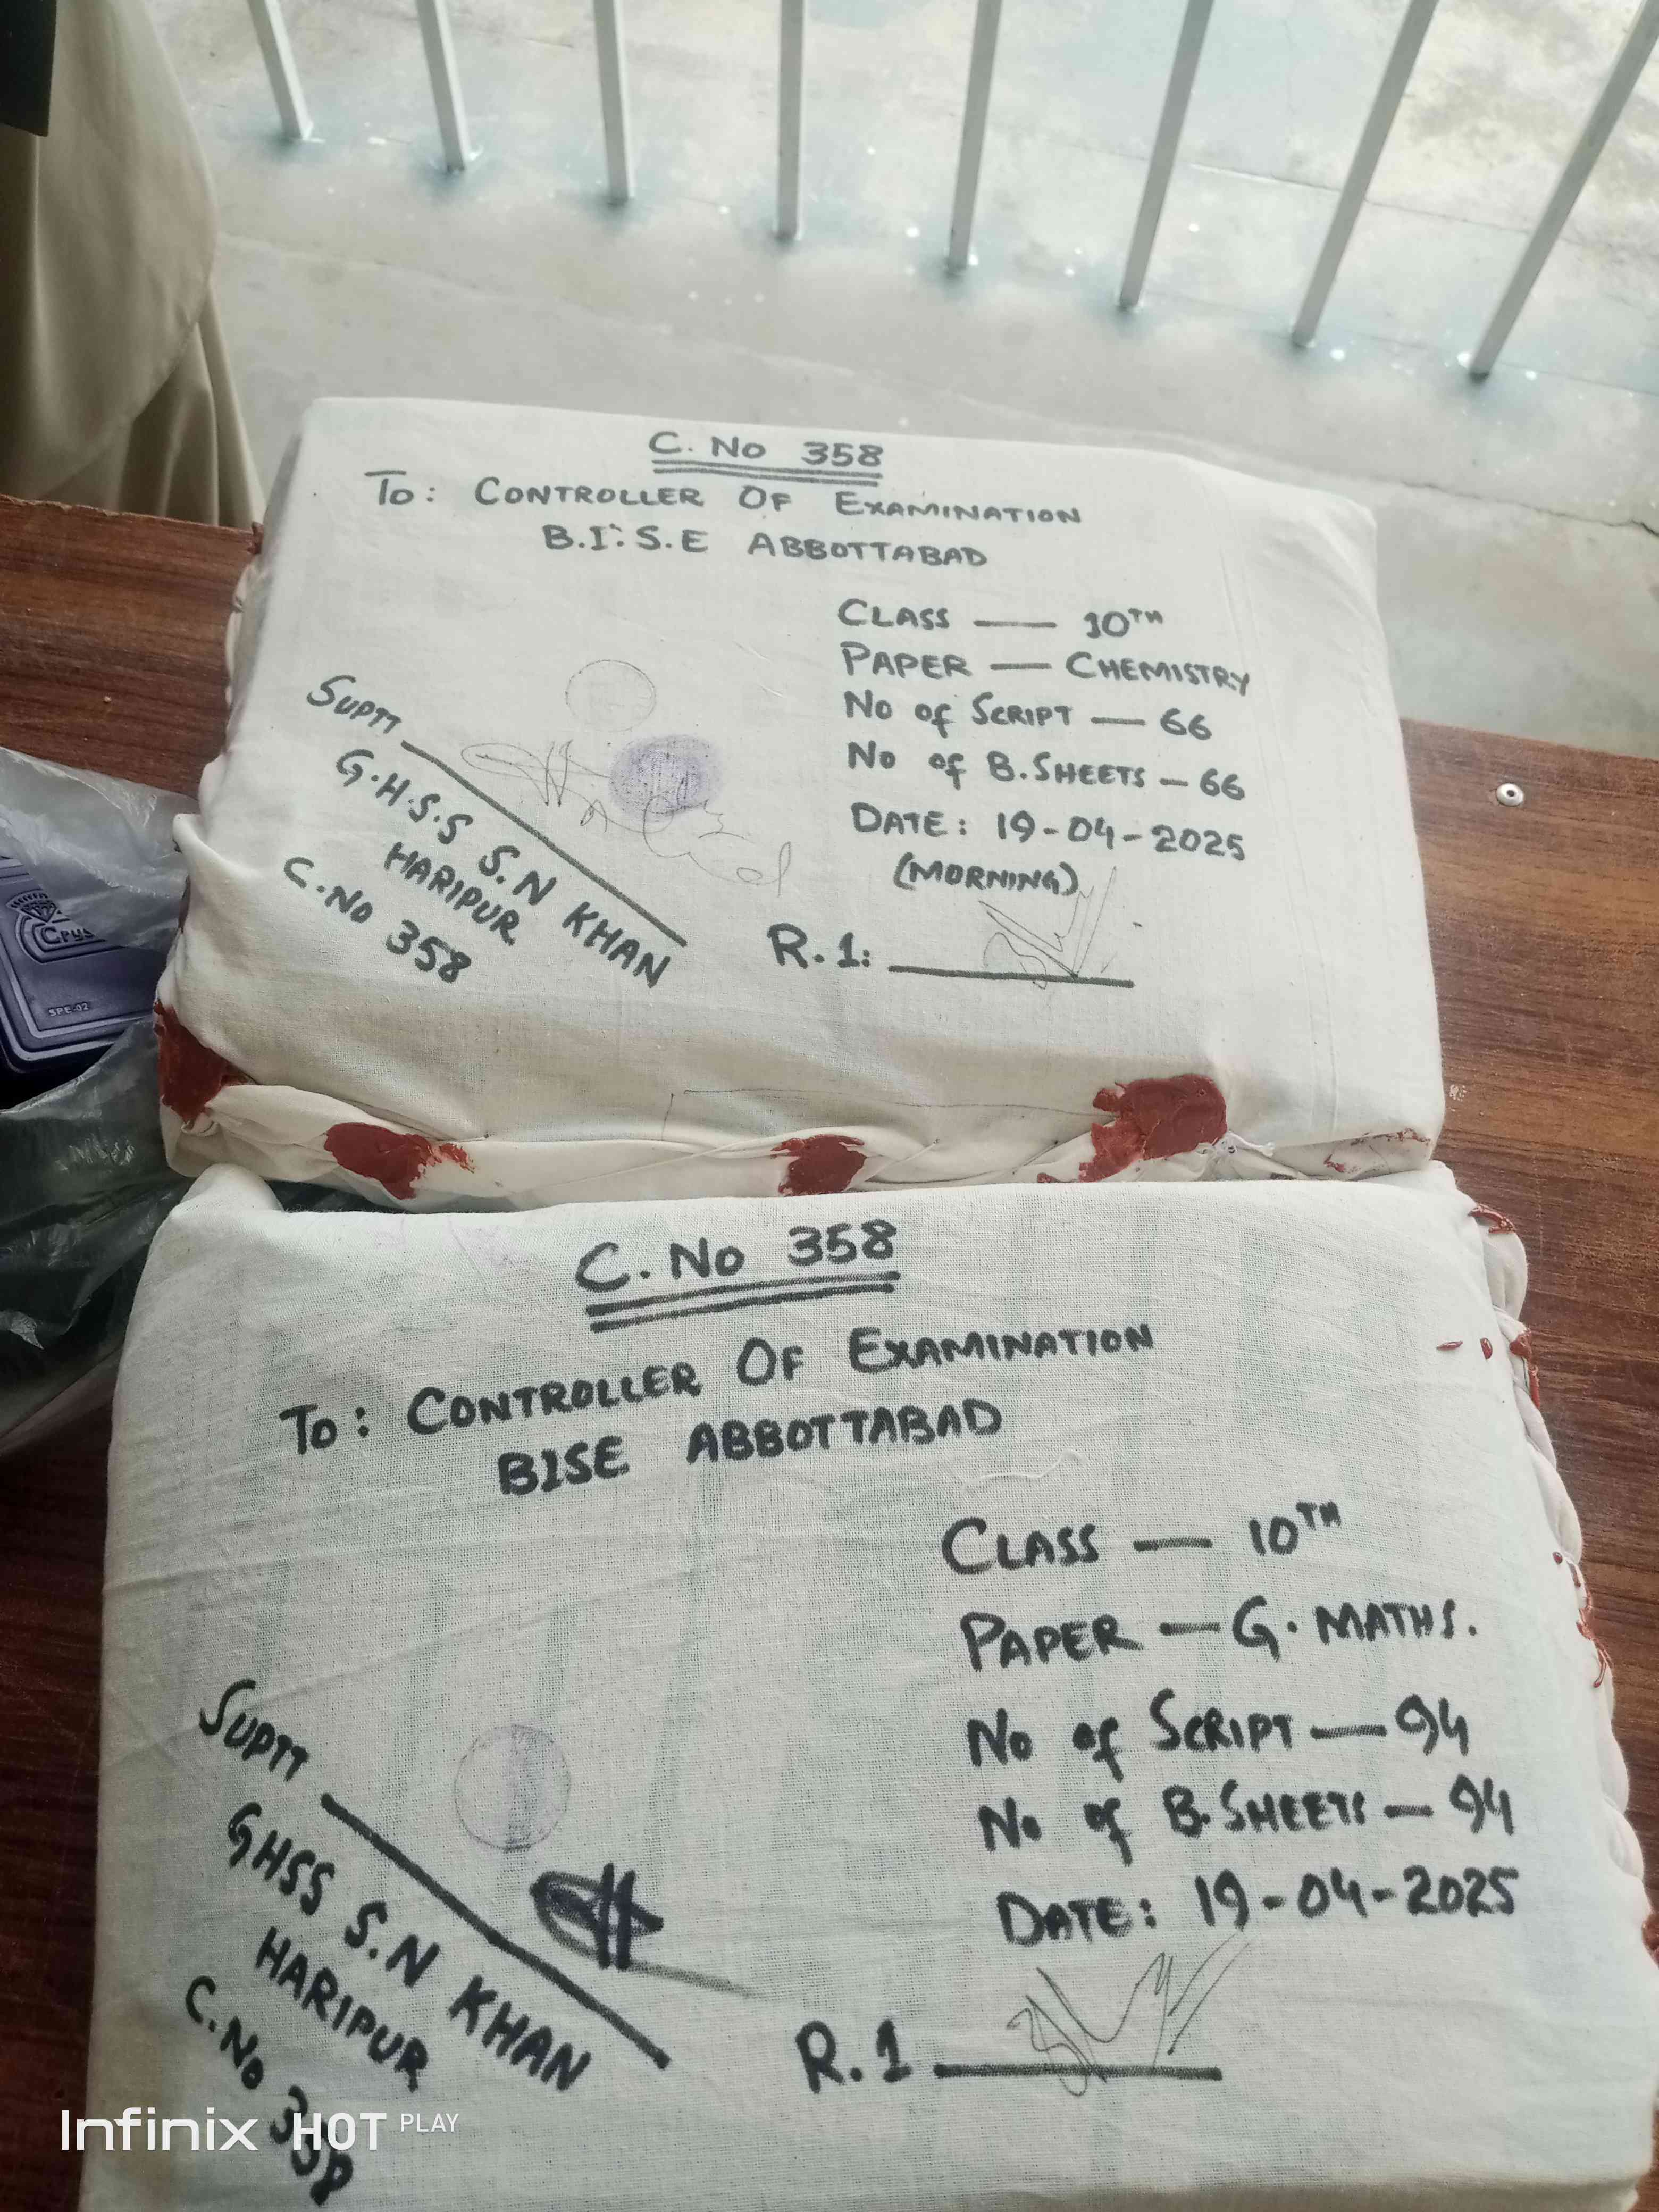 C. No 358
To: CONTROLLER OF EXAMINATION
B.I.S.E ABBOTTABAD
CLASS — 10TH
PAPER — CHEMISTRY
No of SCRIPT — 66
No of B. SHEETS — 66
DATE: 19-04-2025
(MORNING)
SUPTT
G.H.S.S S.N KHAN
HARIPUR
C.No 358
R.1:
SPE-02
C. No 358
To: CONTROLLER OF EXAMINATION
BISE ABBOTTABAD
CLASS — 10TH
PAPER — G. MATHS.
No of SCRIPT — 94
No of B. SHEETS — 94
DATE: 19-04-2025
SUPTT
GHSS S.N KHAN
HARIPUR
C.No 358
R.1
Infinix HOT PLAY